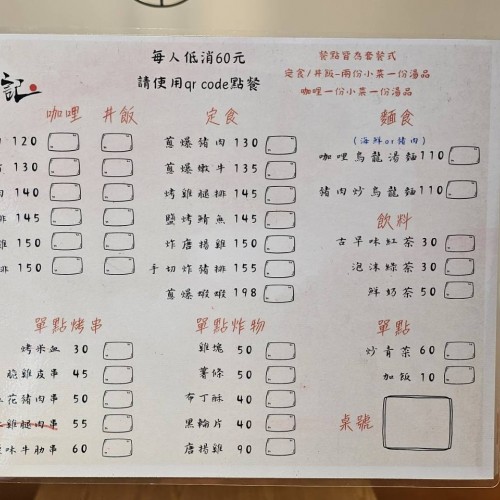 每人低消60元
請使用qr code點餐
餐點皆為套餐式
定食/丼飯-兩份小菜一份湯品
咖哩一份小菜一份湯品
記
咖哩 丼飯
120
130
肉 140
排 145
雞 150
排 150
定食
蔥爆豬肉 130
蔥爆嫩牛 135
烤雞腿排 145
鹽烤鯖魚 145
炸唐揚雞 150
手切炸豬排 155
蔥爆蝦蝦 198
麵食
(海鮮or豬肉)
咖哩烏龍湯麵 110
豬肉炒烏龍麵 110
飲料
古早味紅茶 30
泡沫綠茶 30
鮮奶茶 50
單點烤串
烤米血 30
脆雞皮串 45
花豬肉串 50
雞腿肉串 55
味牛肋串 60
單點炸物
雞塊 50
薯條 50
布丁酥 40
黑輪片 40
唐揚雞 90
單點
炒青菜 60
加飯 10
桌號